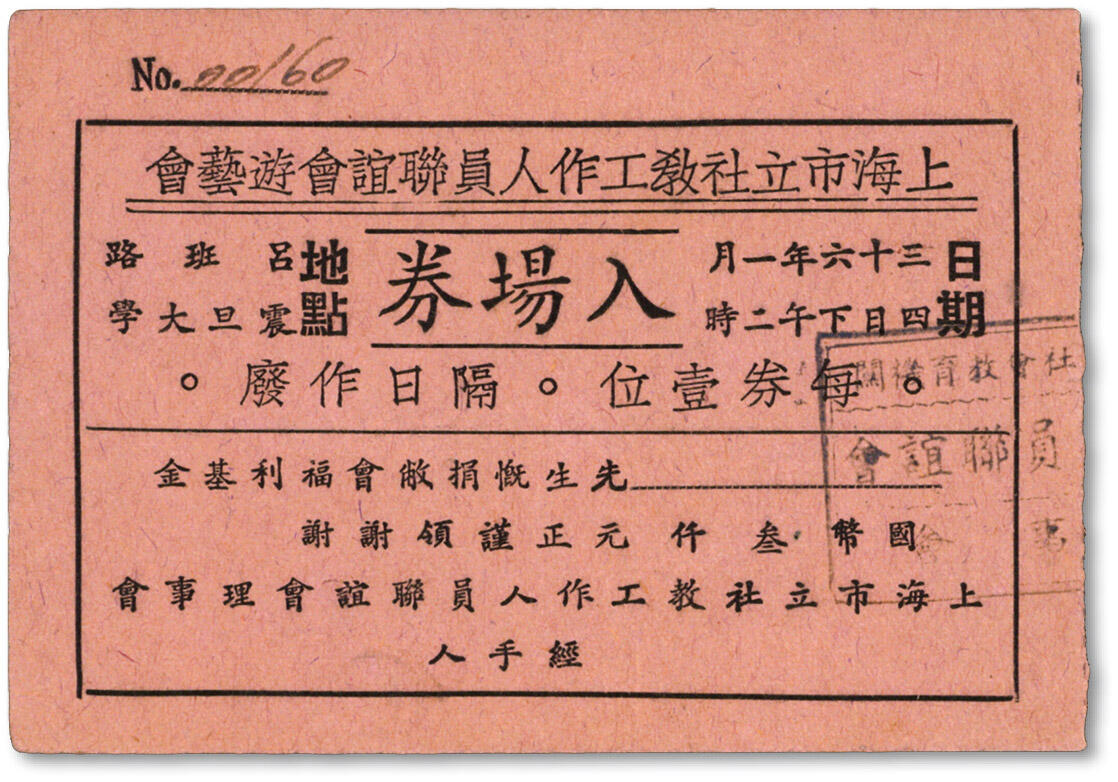 No. 00160
上海市立社教工作人員聯誼會遊藝會
日期
三十六年一月
四日下午二時
入場券
地點
呂班路
震旦大學
。每券壹位。隔日作廢。
先生慨捐敝會福利基金
國幣叁仟元正謹領謝謝
上海市立社教工作人員聯誼會理事會
經手人
社會教育機關
員聯誼會